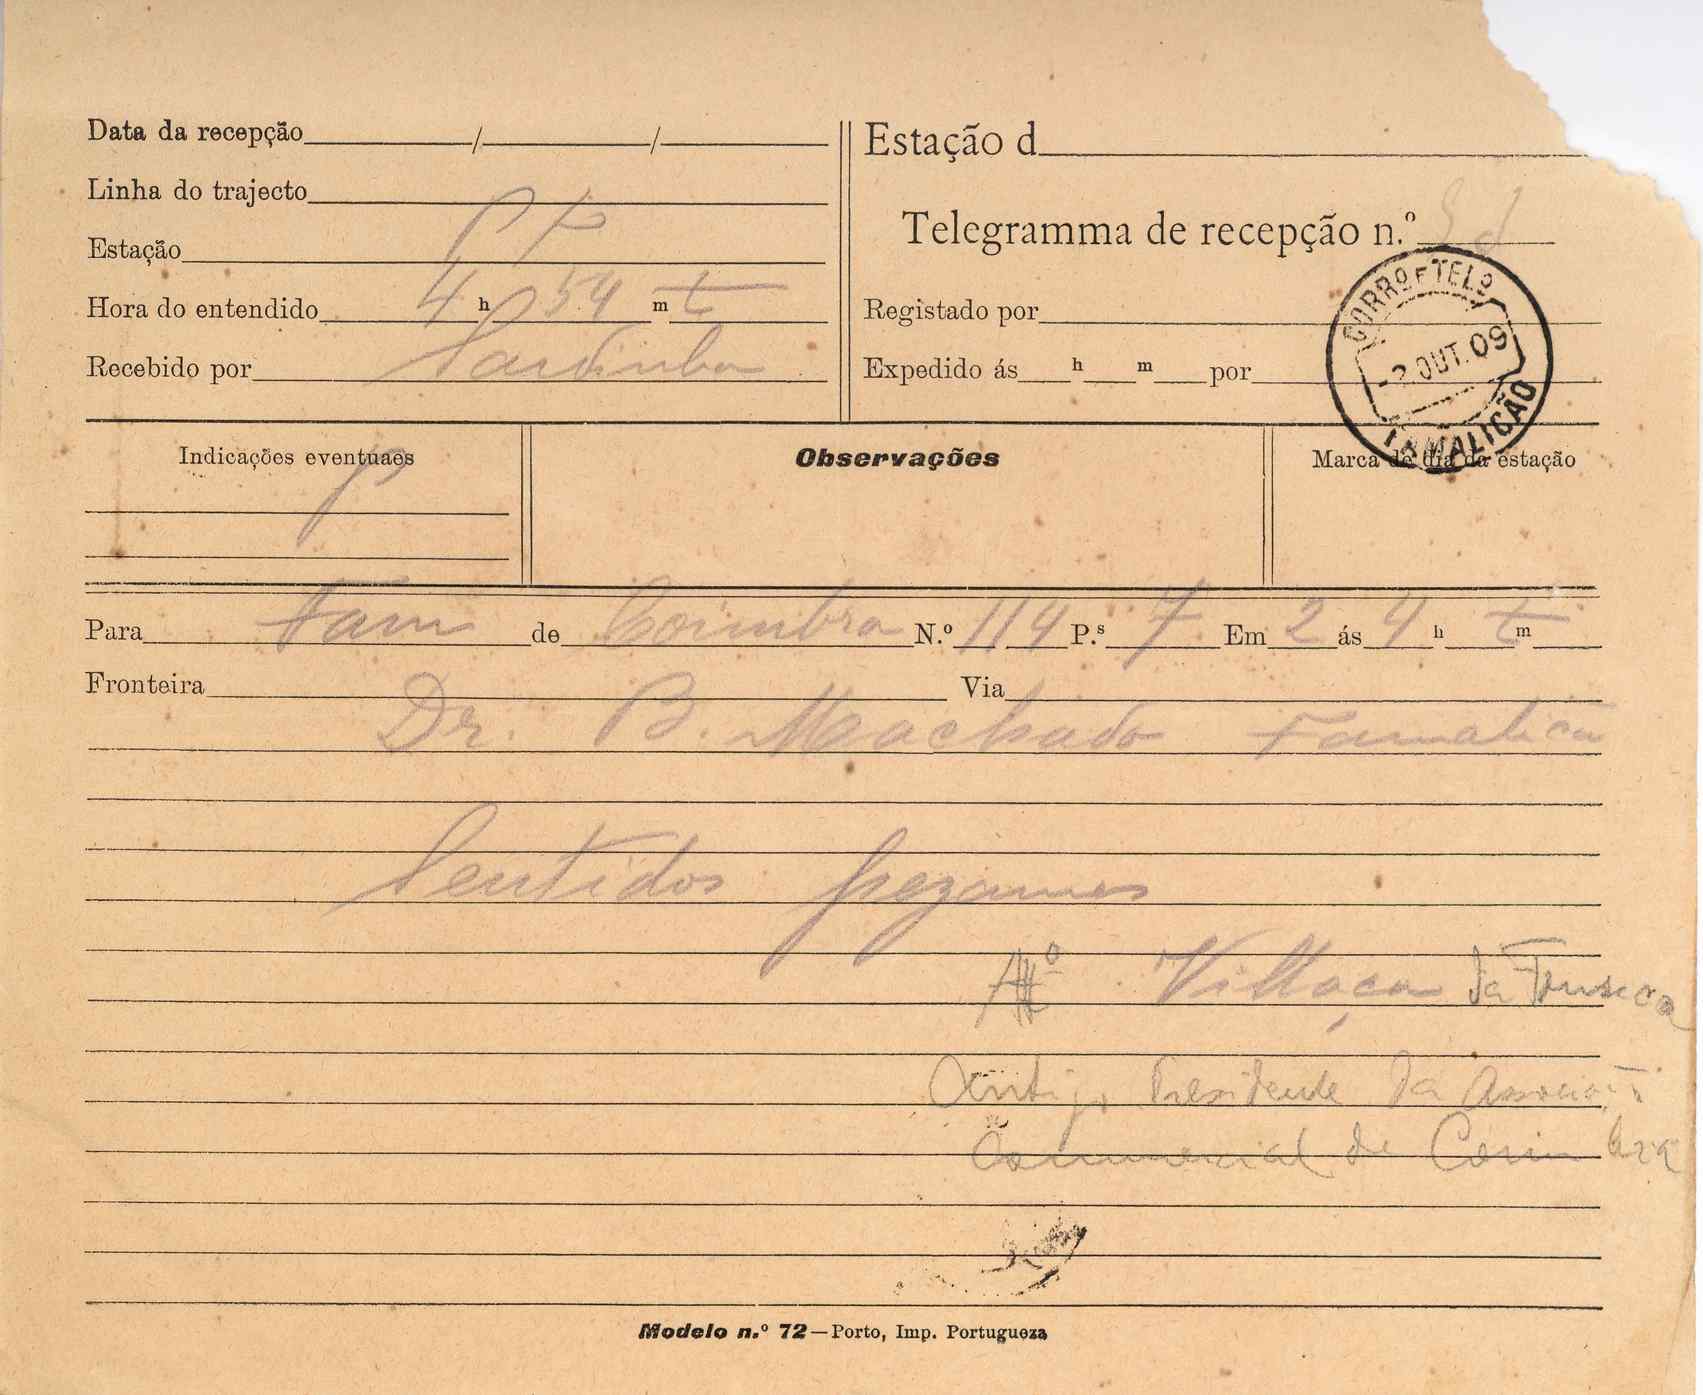 Data da recepção / /
Linha do trajecto
Estação
Hora do entendido 4 h 54 m t
Recebido por Sardinha
Estação d
Telegramma de recepção n.º
Registado por
Expedido ás h m por
CORRO E TELO
-2 OUT. 09
AMALICÃO
Indicações eventuaes
P
Observações
Marca de dia da estação
Para Fam de Coimbra N.º 114 P.s 7 Em 2 ás 4 h t m
Fronteira Via
Dr. B. Machado Famalicão
Sentidos pezames
Villaça da Fonseca
Antigo Presidente da Associação
Commercial de Coimbra
Modelo n.º 72 — Porto, Imp. Portugueza